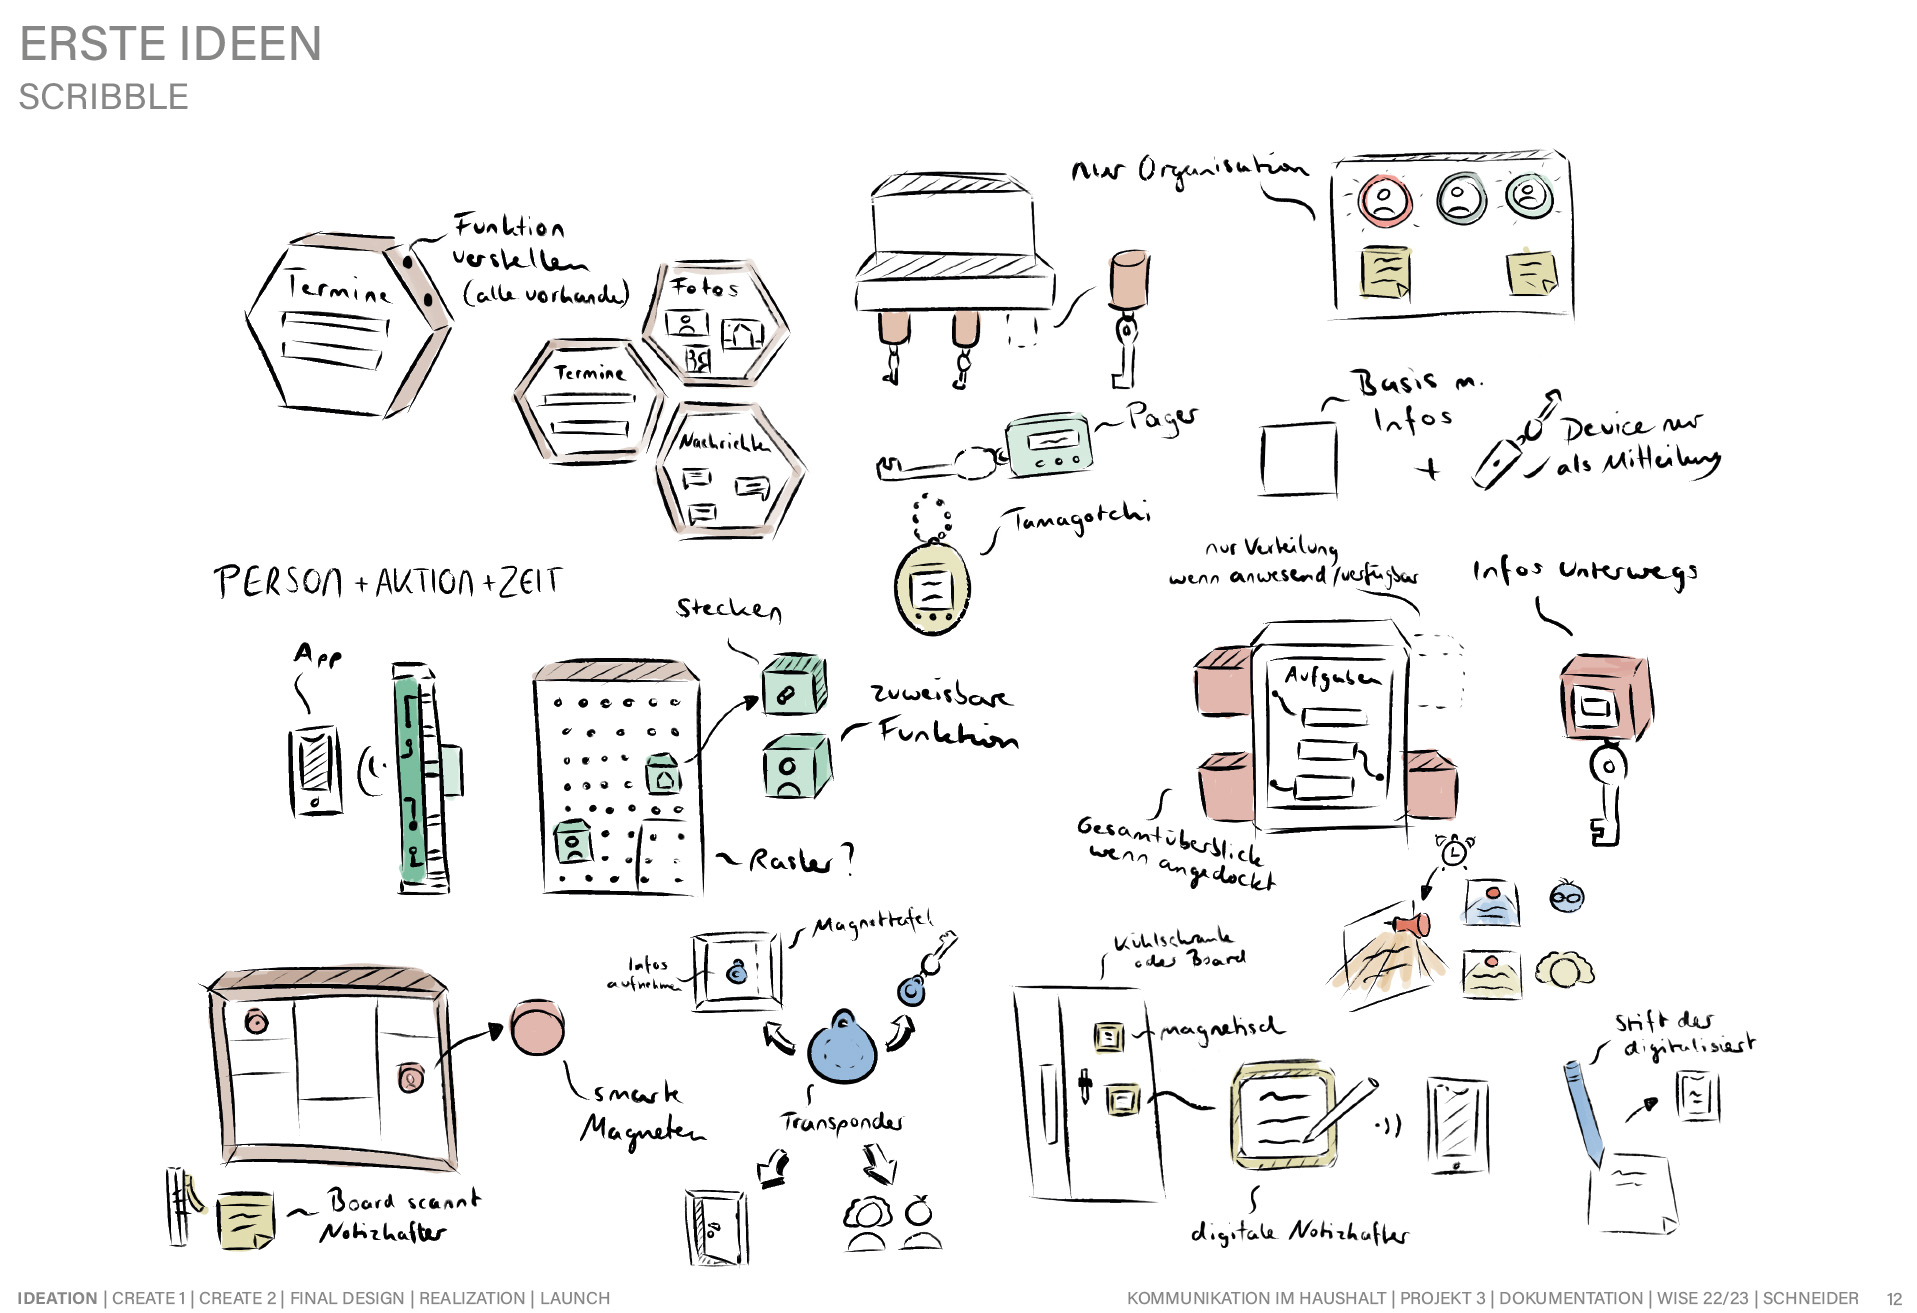 ERSTE IDEEN
SCRIBBLE
Funktion
verstellen
(alle vorhande)
Termine
Fotos
Termine
Nachrichten
nur Organisation
Pager
Tamagotchi
Basis m.
Infos
+
Device nur
als Mitteilung
PERSON + AKTION + ZEIT
App
Stecken
zuweisbare
Funktion
Raster?
nur Verteilung
wenn anwesend/verfügbar
Infos unterwegs
Aufgaben
Gesamtüberblick
wenn angedockt
smarte
Magneten
Board scannt
Notizhafter
Magnettafel
Infos
aufnehmen
Transponder
Kühlschrank
oder Board
magnetisch
digitale Notizhafter
Stift der
digitalisiert
IDEATION | CREATE 1 | CREATE 2 | FINAL DESIGN | REALIZATION | LAUNCH
KOMMUNIKATION IM HAUSHALT | PROJEKT 3 | DOKUMENTATION | WISE 22/23 | SCHNEIDER 12